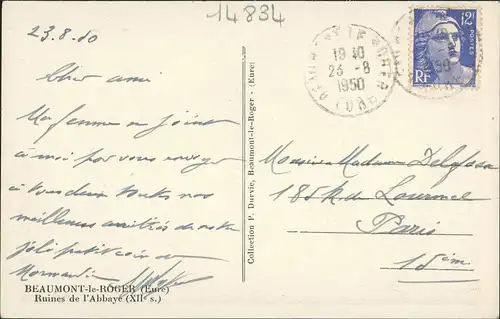 14834
23.8.50
Cher ami
Ma femme se joint
à moi pour vous envoyer
à tous deux toutes nos
meilleures amitiés de notre
joli petit coin de
Normandie
BEAUMONT-le-ROGER (Eure)
Ruines de l'Abbaye (XIIe s.)
Collection P. Durvie, Beaumont-le-Roger - (Eure)
19 40
23 -8
1950
12F
POSTES
RF
Monsieur Madame Delafosse
185 R de Lourmel
Paris
15ème